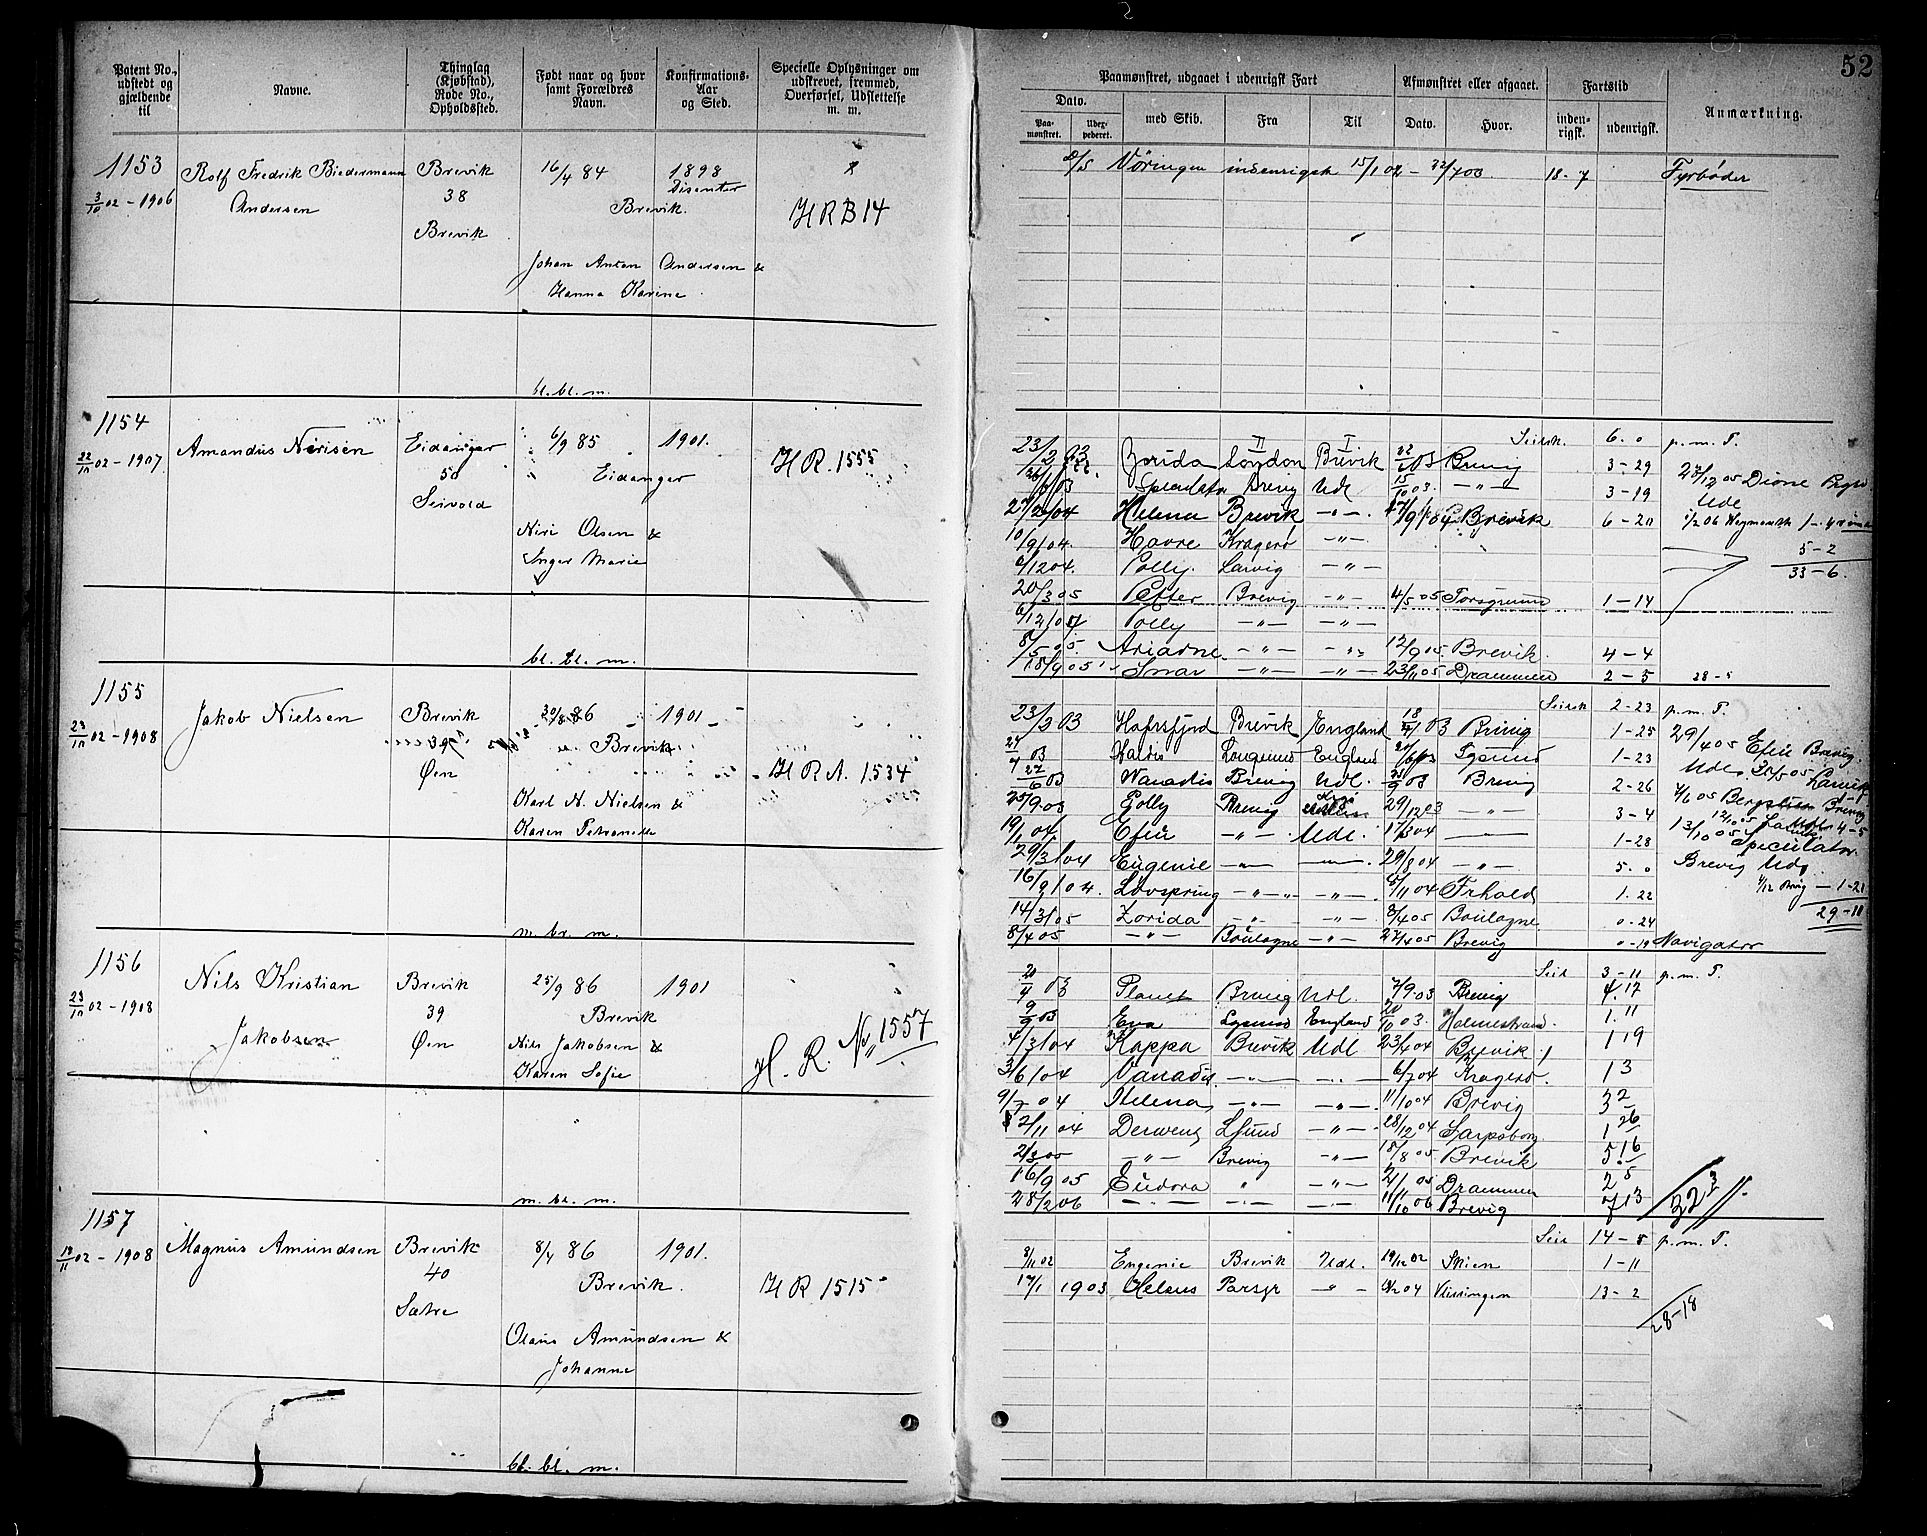 52
Patent No., udstedt og gjældende til
Navne.
Thinglag (Kjøbstad), Rode No., Opholdssted.
Født naar og hvor samt Forældres Navn.
Konfirmations-Aar og Sted.
Specielle Oplysninger om udskrevet, fremmed, Overførsel, Udslettelse m. m.
Paamønstret, udgaaet i udenrigsk Fart
Afmønstret eller afgaaet.
Fartstid
Anmærkning.
Dato.
med Skib.
Fra
Til
Dato.
Hvor.
inden-rigsk.
udenrigsk.
Paa-mønstret.
1153
3/10 02 - 1906
Rolf Fredrik Biedermann
Andersen
Brevik
38
Brevik
16/4 84
1898
Disenter
Brevik.
HRB 14
Johan Anton Andersen &
Hanna Karine
bl. bl. m.
D/S Vøringen indenrigsk 15/1 02 - 22/7 03 18-7 Fyrbøder
1154
22/10 02 - 1907
Amandus Nirisen
Eidanger
50
Seivold
6/9 85
1901.
Eidanger
HR. 1555
Niri Olsen &
Inger Marie
bl. bl. m.
Seilsk. 6.0 p. m. T.
Zorida London Brevik 3-29
Brevig Udl 15/10 03. -"- 3-19
27/2 04 Helena Brevik -"- Brevik 6-20
10/9 04. Havre Kragerø -"-
Polly. Larvig -"-
20/3 05 Efter Brevig -"- 4/5 05 Porsgrund 1-14
6/12 04 Polly -"- -"-
8/5 05. Ariadne -"- -"- 12/9 05 Brevik. 4-4
18/9 05 Snar -"- -"- 23/11 05 Drammen 2-5 28-5
27/12 05 Dione
Udl
5-2
33-6.
1155
23/10 02 - 1908
Jakob Nielsen
Brevik
39
Øen
30/8 86
1901
Brevik
HRA. 1534
Karl N. Nielsen &
Karen Petranelle
m. br. m.
Seilsk 2-23 p. m. T.
23/2 03 Hafrsfjord Brevik England Brevig 1-25
Haldis Langesund England 1-23
27/6 03 Vanadis Brevig Udl. Brevig 2-26
25/9 03 Polly Brevig 29/12 03 -"- 3-4
19/1 04 Efeu -"- Udl. 17/3 04 1-28
29/3 04 Eugenie -"- 29/8 04 -"- 5.0
16/9 04. Lovspring -"- -"- 8/11 04 Frhald 1.22
14/3 05 Zorida -"- -"- 8/4 05 Boulogne 0-24
8/4 05 -"- Boulogne -"- 27/4 05 Brevig 0-19 Navigator
29/4 05 Efeu Brevig
Udl. Larvik
Brevig
13/10 05 Speculator
Brevig Udl
29-11
1156
23/10 02 - 1908
Nils Kristian
Jakobsen
Brevik
39
Øen
25/9 86
1901
Brevik
H. R. No 1557
Nils Jakobsen &
Karen Sofie
m. bl. m.
Seil 3-11 p. m. T.
20/4 03 Planet Brevig Udl. 7/9 03 Brevig 4.17
9/9 03 Eva Lgesund England 20/10 03. Holmestrand. 1.11
4/3 04 Kappa Brevik Udl 23/4 04 Brevik 1 19
3/6 04 Vanadis -"- 6/7 04 Kragerø. 1 3
9/7 04 Helena -"- -"- 11/10 04 Brevig 3 2
2/11 04 Derwent LSund -"- 28/12 04 Sarpsborg. 1 26
2/3 05 -"- Brevig -"- 18/8 05 Brevik 5.16
16/9 05 Eudora " -"- 21/11 05 Drammen 2 5
28/2 06 11/10 06 Brevig 7 13
32 3
1157
19/11 02 - 1908
Magnus Amundsen
Brevik
40
Sætre
8/4 86
1901.
Brevik.
HR 1515
Olaus Amundsen &
Johanne
bl. bl. m.
Seil 14-5 p. m. T.
8/11 02 Eugenie Brevik Udl. 19/12 02 Skien 1-11
17/1 1903 Helios Porsgr " Vlissingen 13-2
28-18